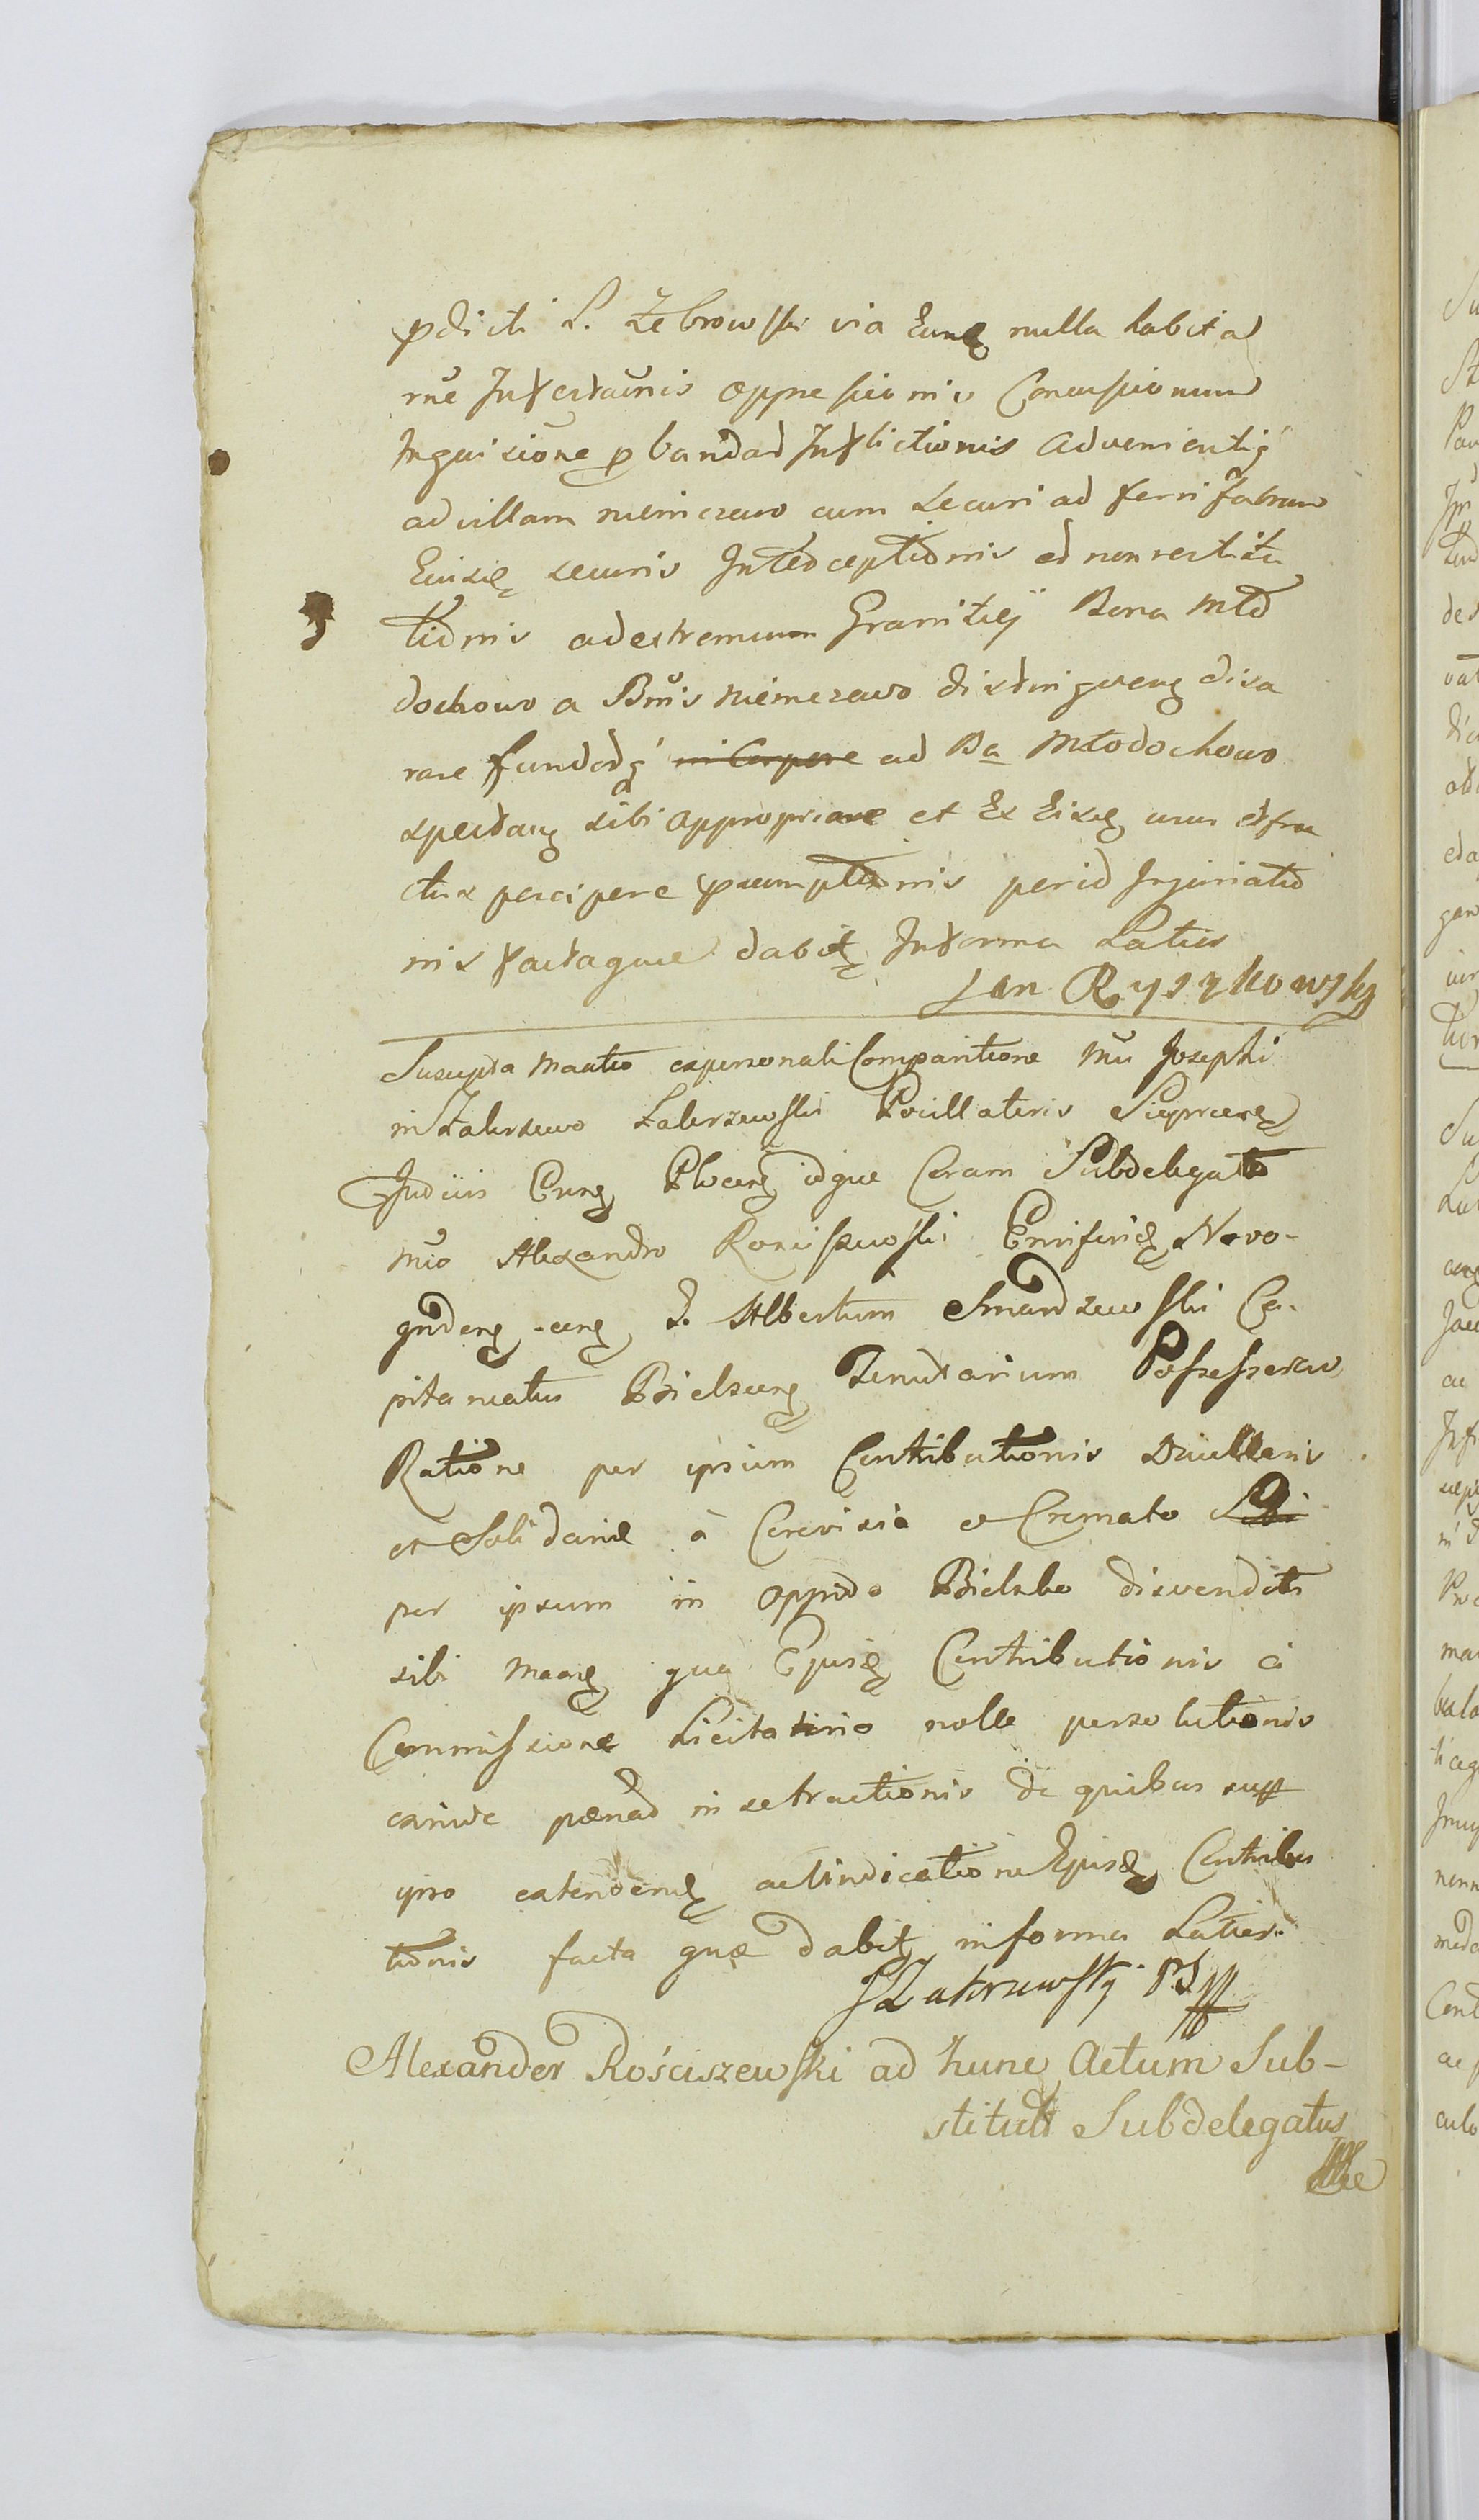 pdicti L. Żebrowski via Eund nulla habita
rne Infestaonis oppressionis Concussionum
Inquisione p bandas Inflictionis advenientiq
ad villam niemczewo cum securi ad ferri fabrum
Eiusd securis Interceptionis et non restitu
tionis ad extremum Granitiey Bona Mło
dochowo a Bonis niemczewo distinguend disa
rare fundosq in Corpore ad Ba Młodochowo
spectan sibi appropriare et Ex Eisd usus et fru
ctus percipere praesumptionis per id Injuriatio
nis factaque dabit In forma Latius
Jan Rysykowsky
Suscepta Manifestatio ex personali Comparitione Mci Josephi
in Zakrzewo Zakrzewski Pocillatoris Sieprcens
Judiciis Cens Plocens idque Coram Subdelegato
Mco Alexandro Rosciszewski Ensiferid Novo-
grodens cens L. Albertum Smardzewski Ca-
pitaneatus Bielscens Tenutarium Possessorem
Ratione per ipsum Contributionis Ducillaris
et Solidarie à Cerevisia et Cremato Sibi
per ipsum in oppido Bielsko disvenditi
sibi qua Ejusd Contributionis à
Commissione Licitatorio nolle persolutionis
exinde poenas in se tractionis de quibus sup
ipso extendend ac Vindicatione Ejusd Contribu
tionis facta quae dabit in forma Latiori
JZakrzewsky PS
Alexander Rościszewski ad hunc Actum Sub-
stitut Subdelegatus